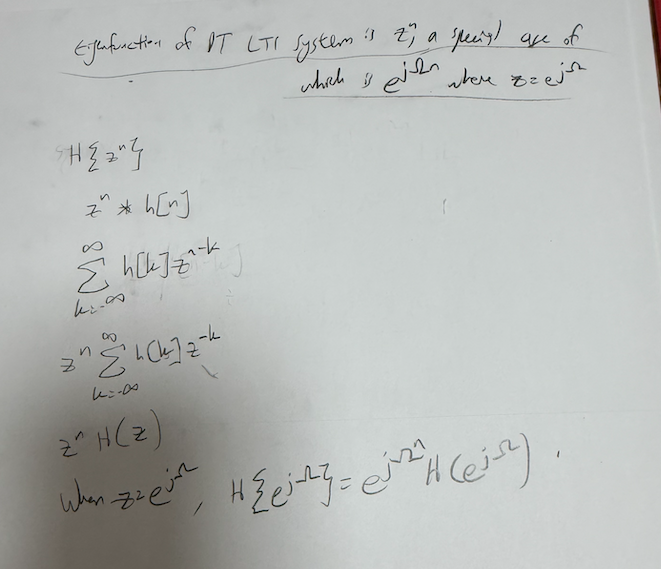 Eigenfunction of DT LTI system is zⁿ, a special case of
which is e^{jΩn} where z=e^{jΩ}
H{zⁿ}
zⁿ * h[n]
∑_{k=-∞}^{∞} h[k]z^{n-k}
zⁿ ∑_{k=-∞}^{∞} h[k]z^{-k}
zⁿ H(z)
When z=e^{jΩ}, H{e^{jΩ}}=e^{jΩn} H(e^{jΩ}).